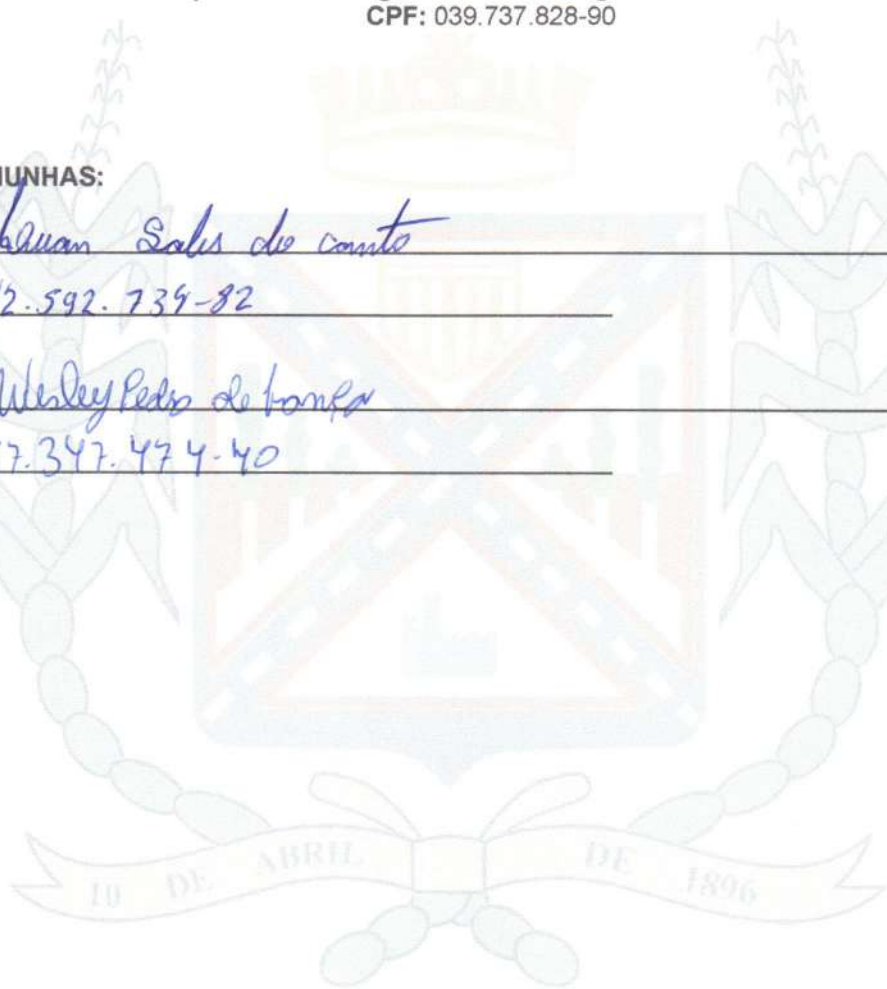 CPF: 039.737.828-90
MUNHAS:
Sales do canto
2.592.739-82
Wesley Pedro de
7.347.474-40
10 DE ABRIL DE 1896